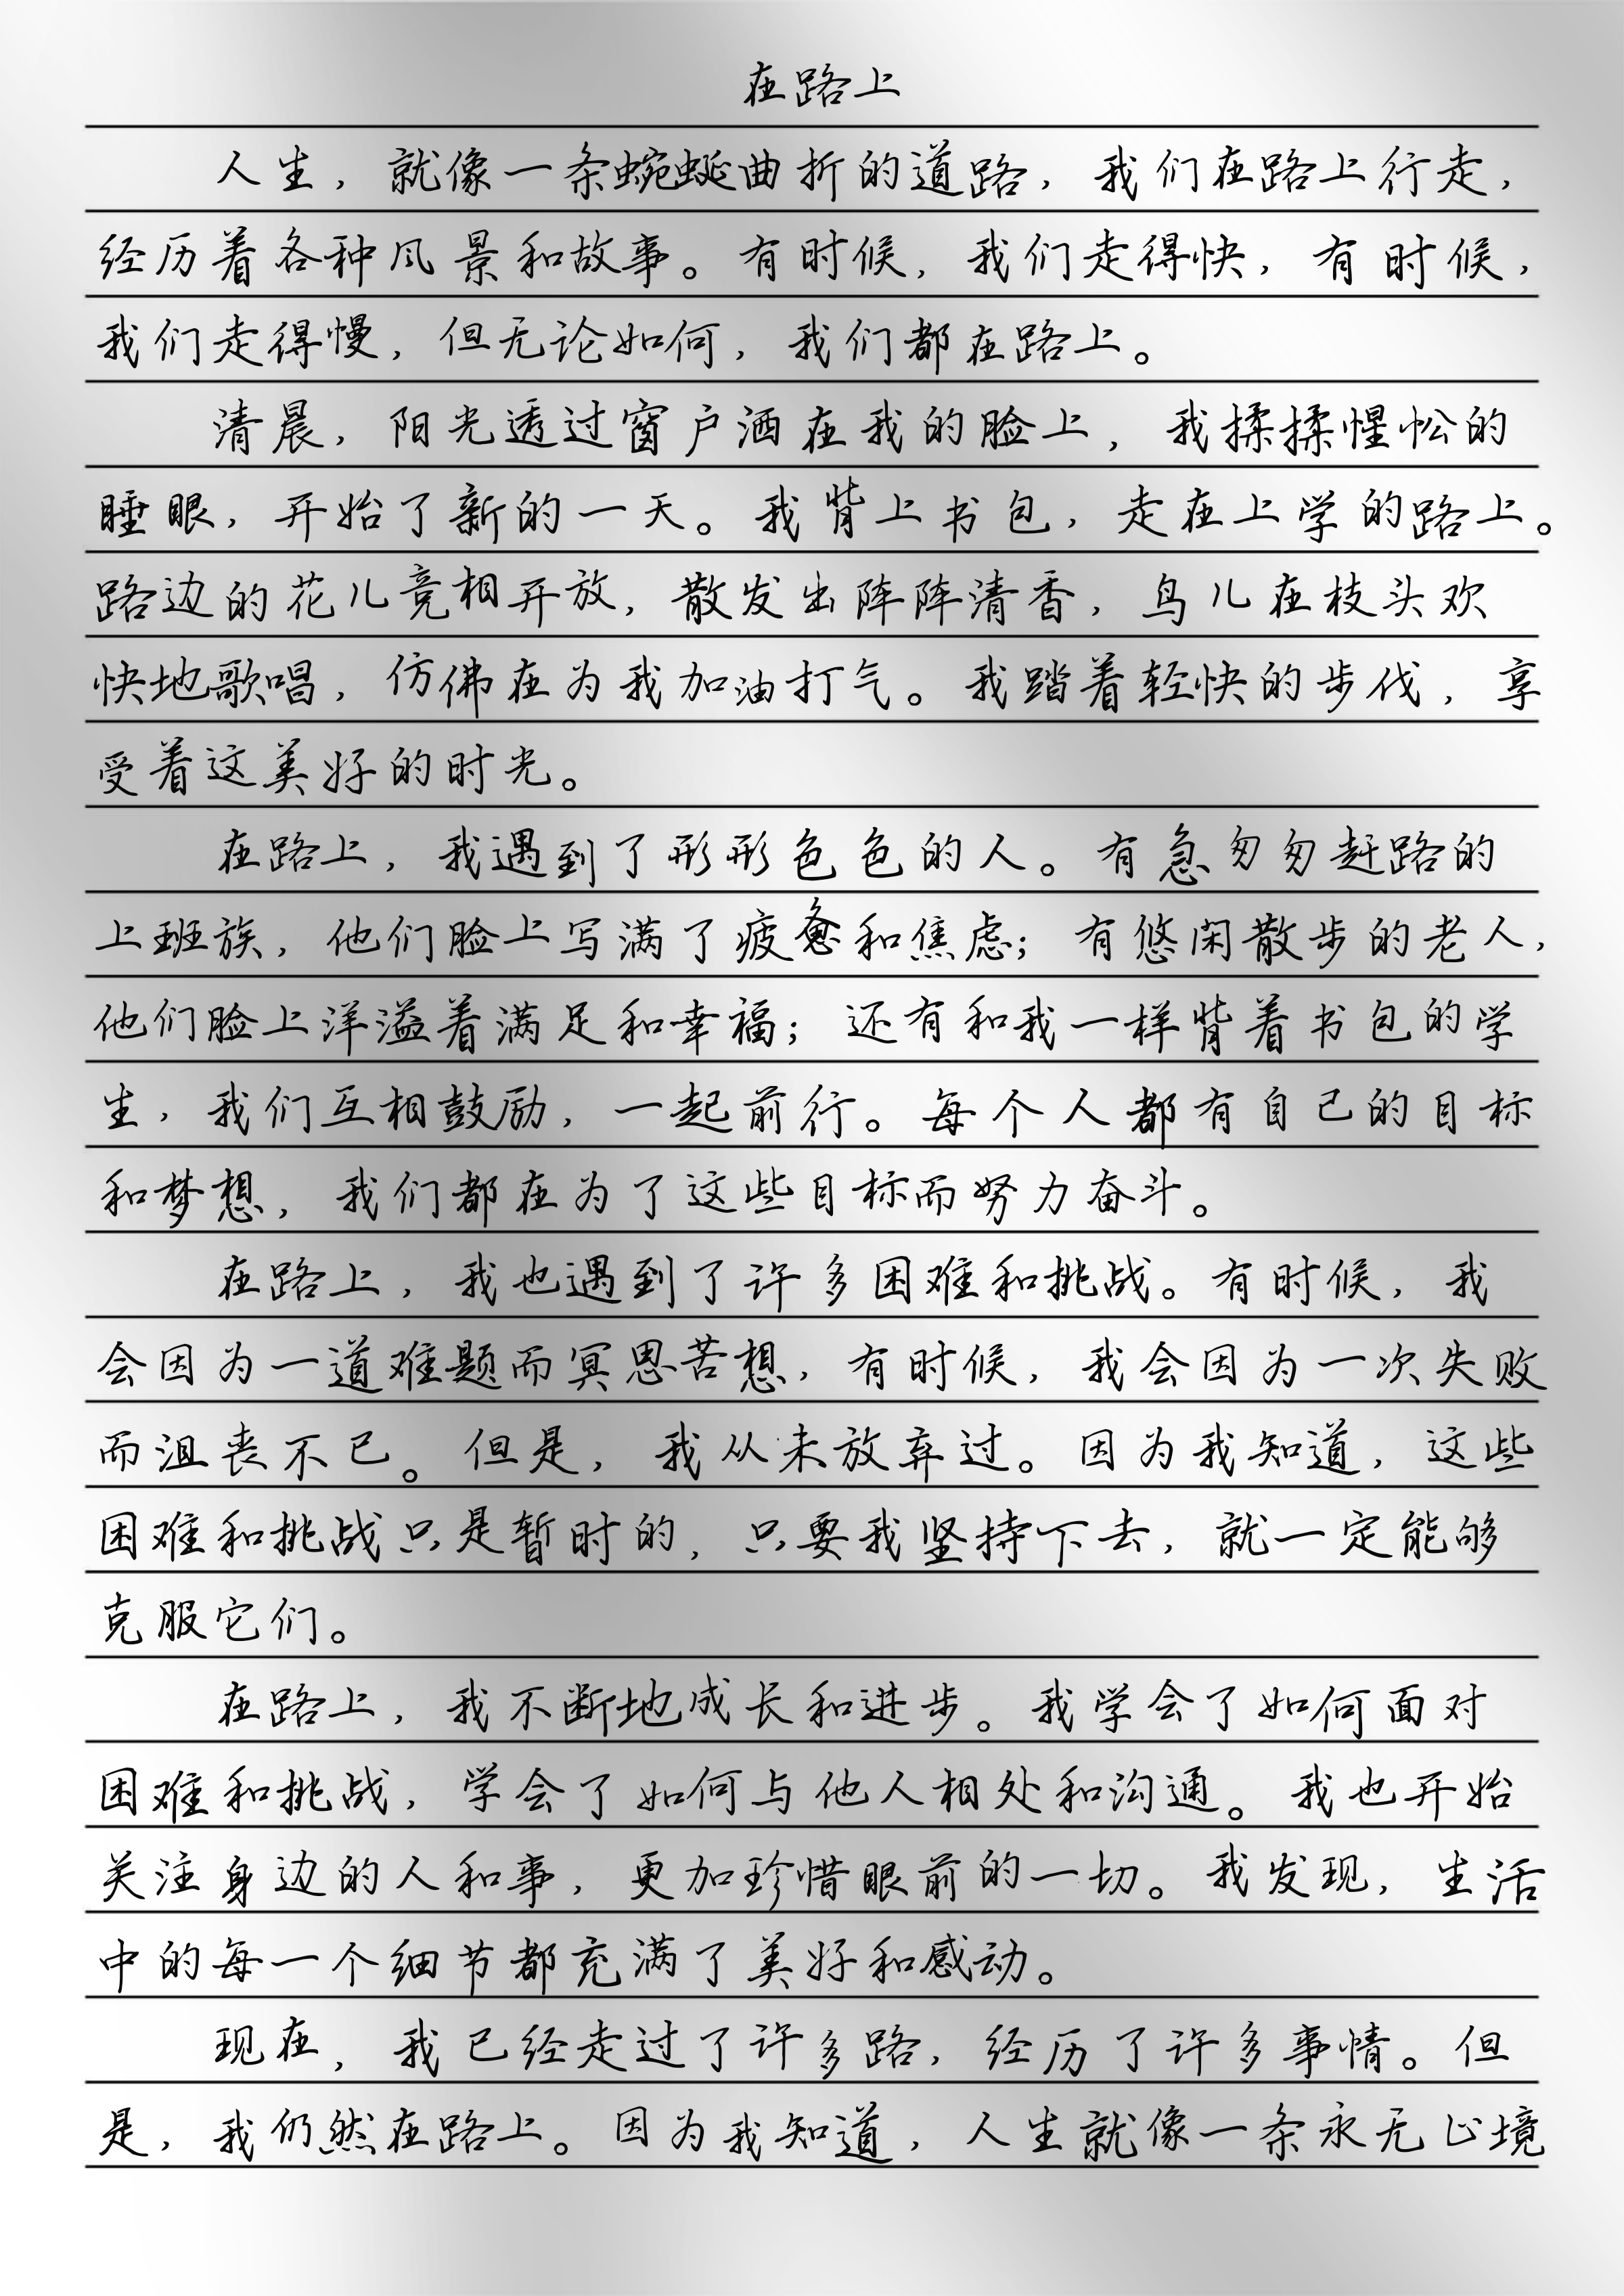 在路上
人生，就像一条蜿蜒曲折的道路，我们在路上行走，
经历着各种风景和故事。有时候，我们走得快，有时候，
我们走得慢，但无论如何，我们都在路上。
清晨，阳光透过窗户洒在我的脸上，我揉揉惺忪的
睡眼，开始了新的一天。我背上书包，走在上学的路上。
路边的花儿竞相开放，散发出阵阵清香，鸟儿在枝头欢
快地歌唱，仿佛在为我加油打气。我踏着轻快的步伐，享
受着这美好的时光。
在路上，我遇到了形形色色的人。有急匆匆赶路的
上班族，他们脸上写满了疲惫和焦虑；有悠闲散步的老人，
他们脸上洋溢着满足和幸福；还有和我一样背着书包的学
生，我们互相鼓励，一起前行。每个人都有自己的目标
和梦想，我们都在为了这些目标而努力奋斗。
在路上，我也遇到了许多困难和挑战。有时候，我
会因为一道难题而冥思苦想，有时候，我会因为一次失败
而沮丧不已。但是，我从未放弃过。因为我知道，这些
困难和挑战只是暂时的，只要我坚持下去，就一定能够
克服它们。
在路上，我不断地成长和进步。我学会了如何面对
困难和挑战，学会了如何与他人相处和沟通。我也开始
关注身边的人和事，更加珍惜眼前的一切。我发现，生活
中的每一个细节都充满了美好和感动。
现在，我已经走过了许多路，经历了许多事情。但
是，我仍然在路上。因为我知道，人生就像一条永无止境